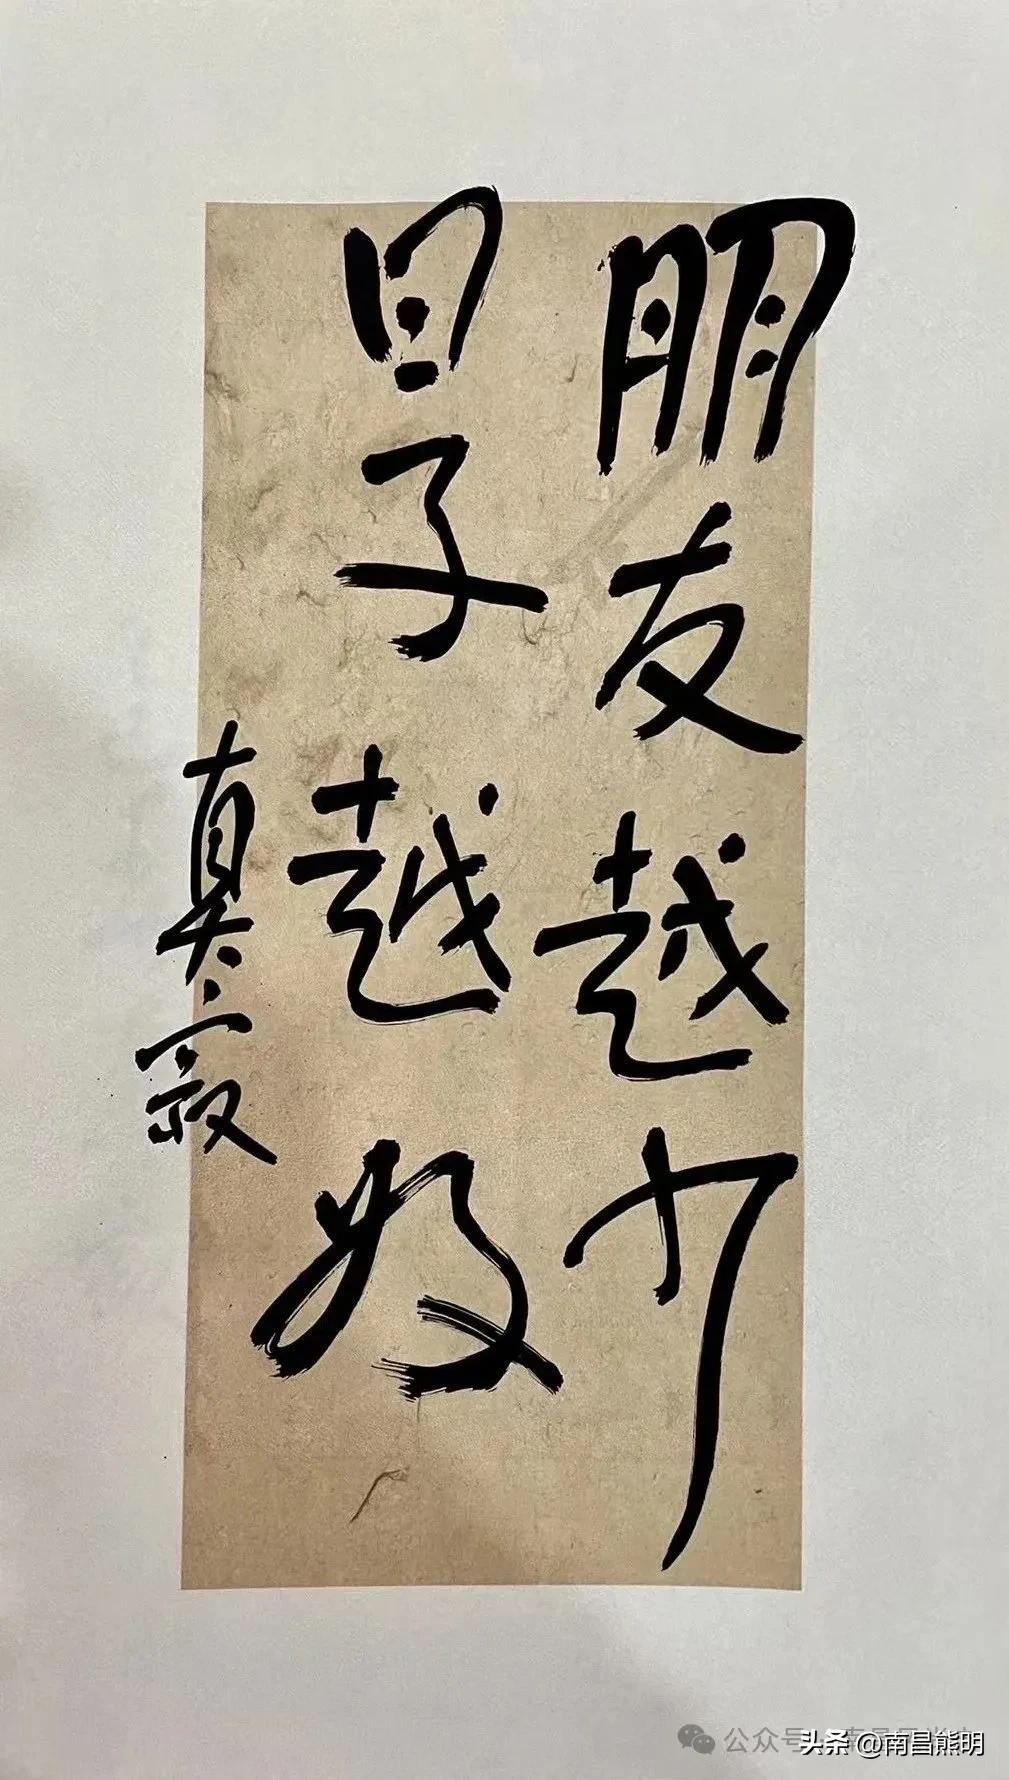 朋友越少
日子越好
真寂
公众号
头条 @南昌熊明